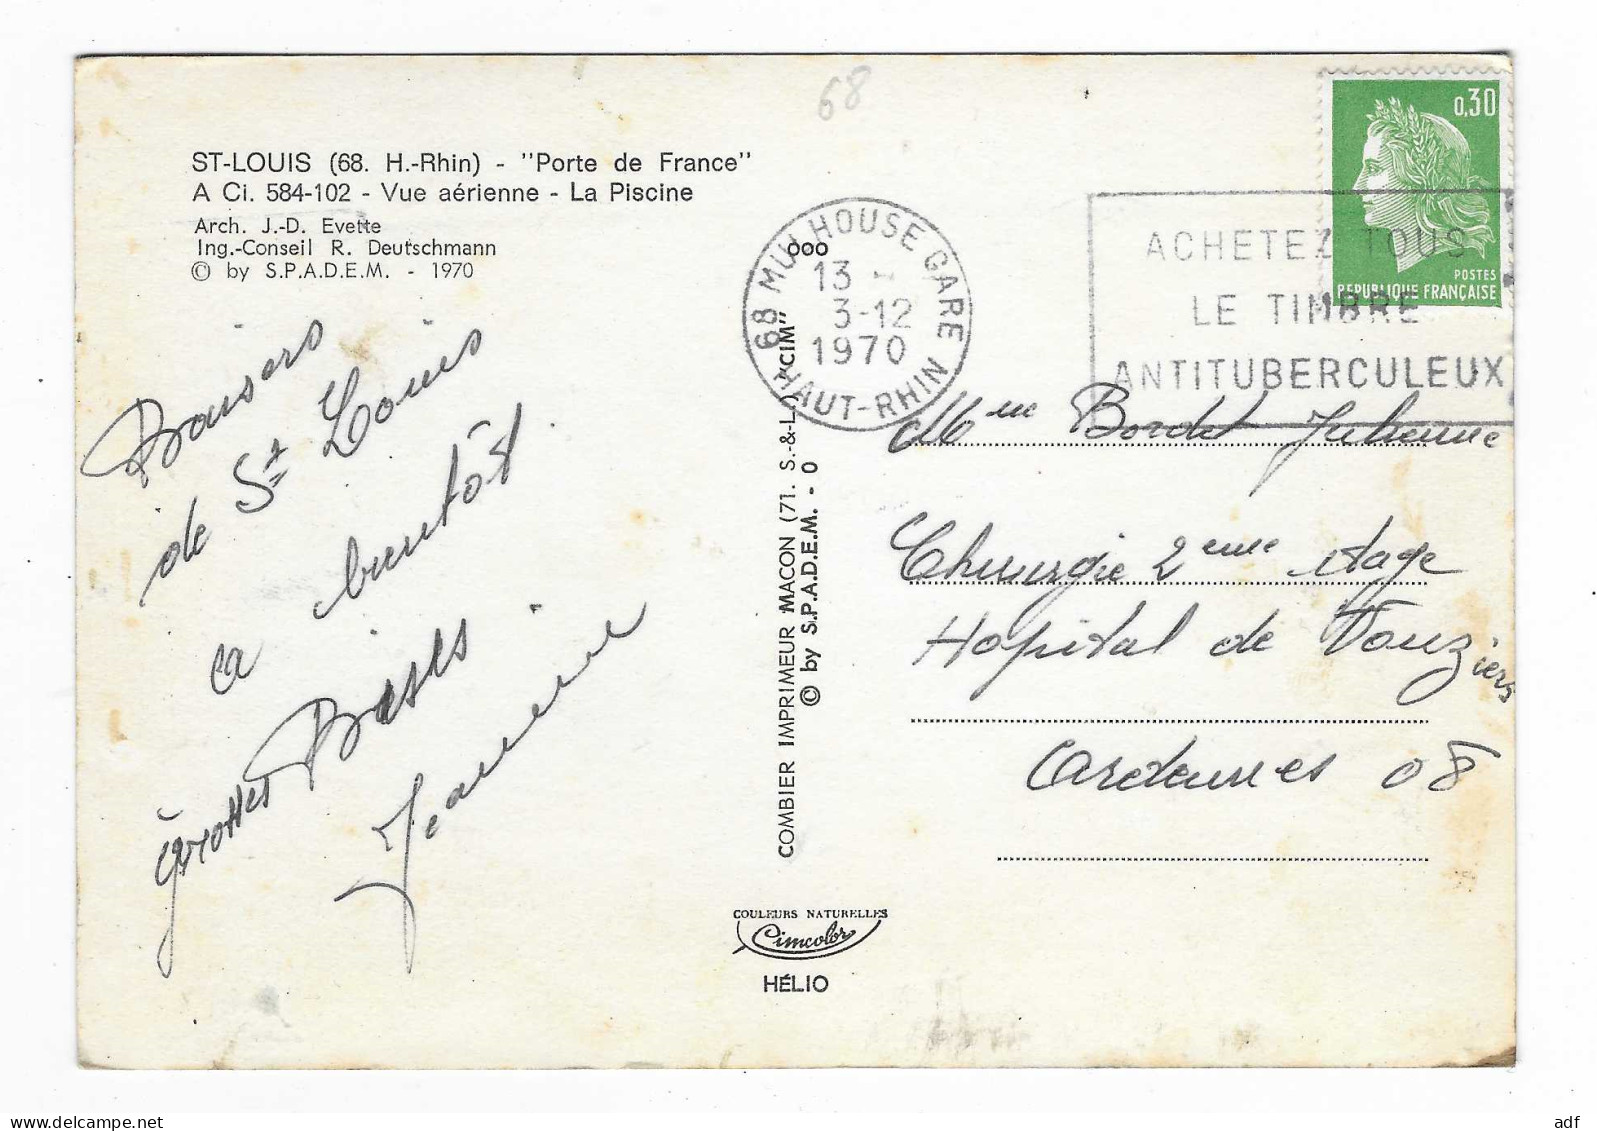 68
ST-LOUIS (68. H.-Rhin) - "Porte de France"
A Ci. 584-102 - Vue aérienne - La Piscine
Arch. J.-D. Evette
Ing.-Conseil R. Deutschmann
© by S.P.A.D.E.M. - 1970
Baisers
de St Louis
a bientôt
grosses Bises
Jeanine
COMBIER IMPRIMEUR MACON (71. S.-&-L.) "CIM"
© by S.P.A.D.E.M. - O
COULEURS NATURELLES
Cimcolor
HÉLIO
68 MULHOUSE GARE
13 -
3-12
1970
HAUT-RHIN
ACHETEZ TOUS
LE TIMBRE
ANTITUBERCULEUX
0,30
POSTES
REPUBLIQUE FRANÇAISE
Mme Bordet Julienne
Chirurgie 2eme etage
Hopital de Vouziers
Ardennes 08
adf